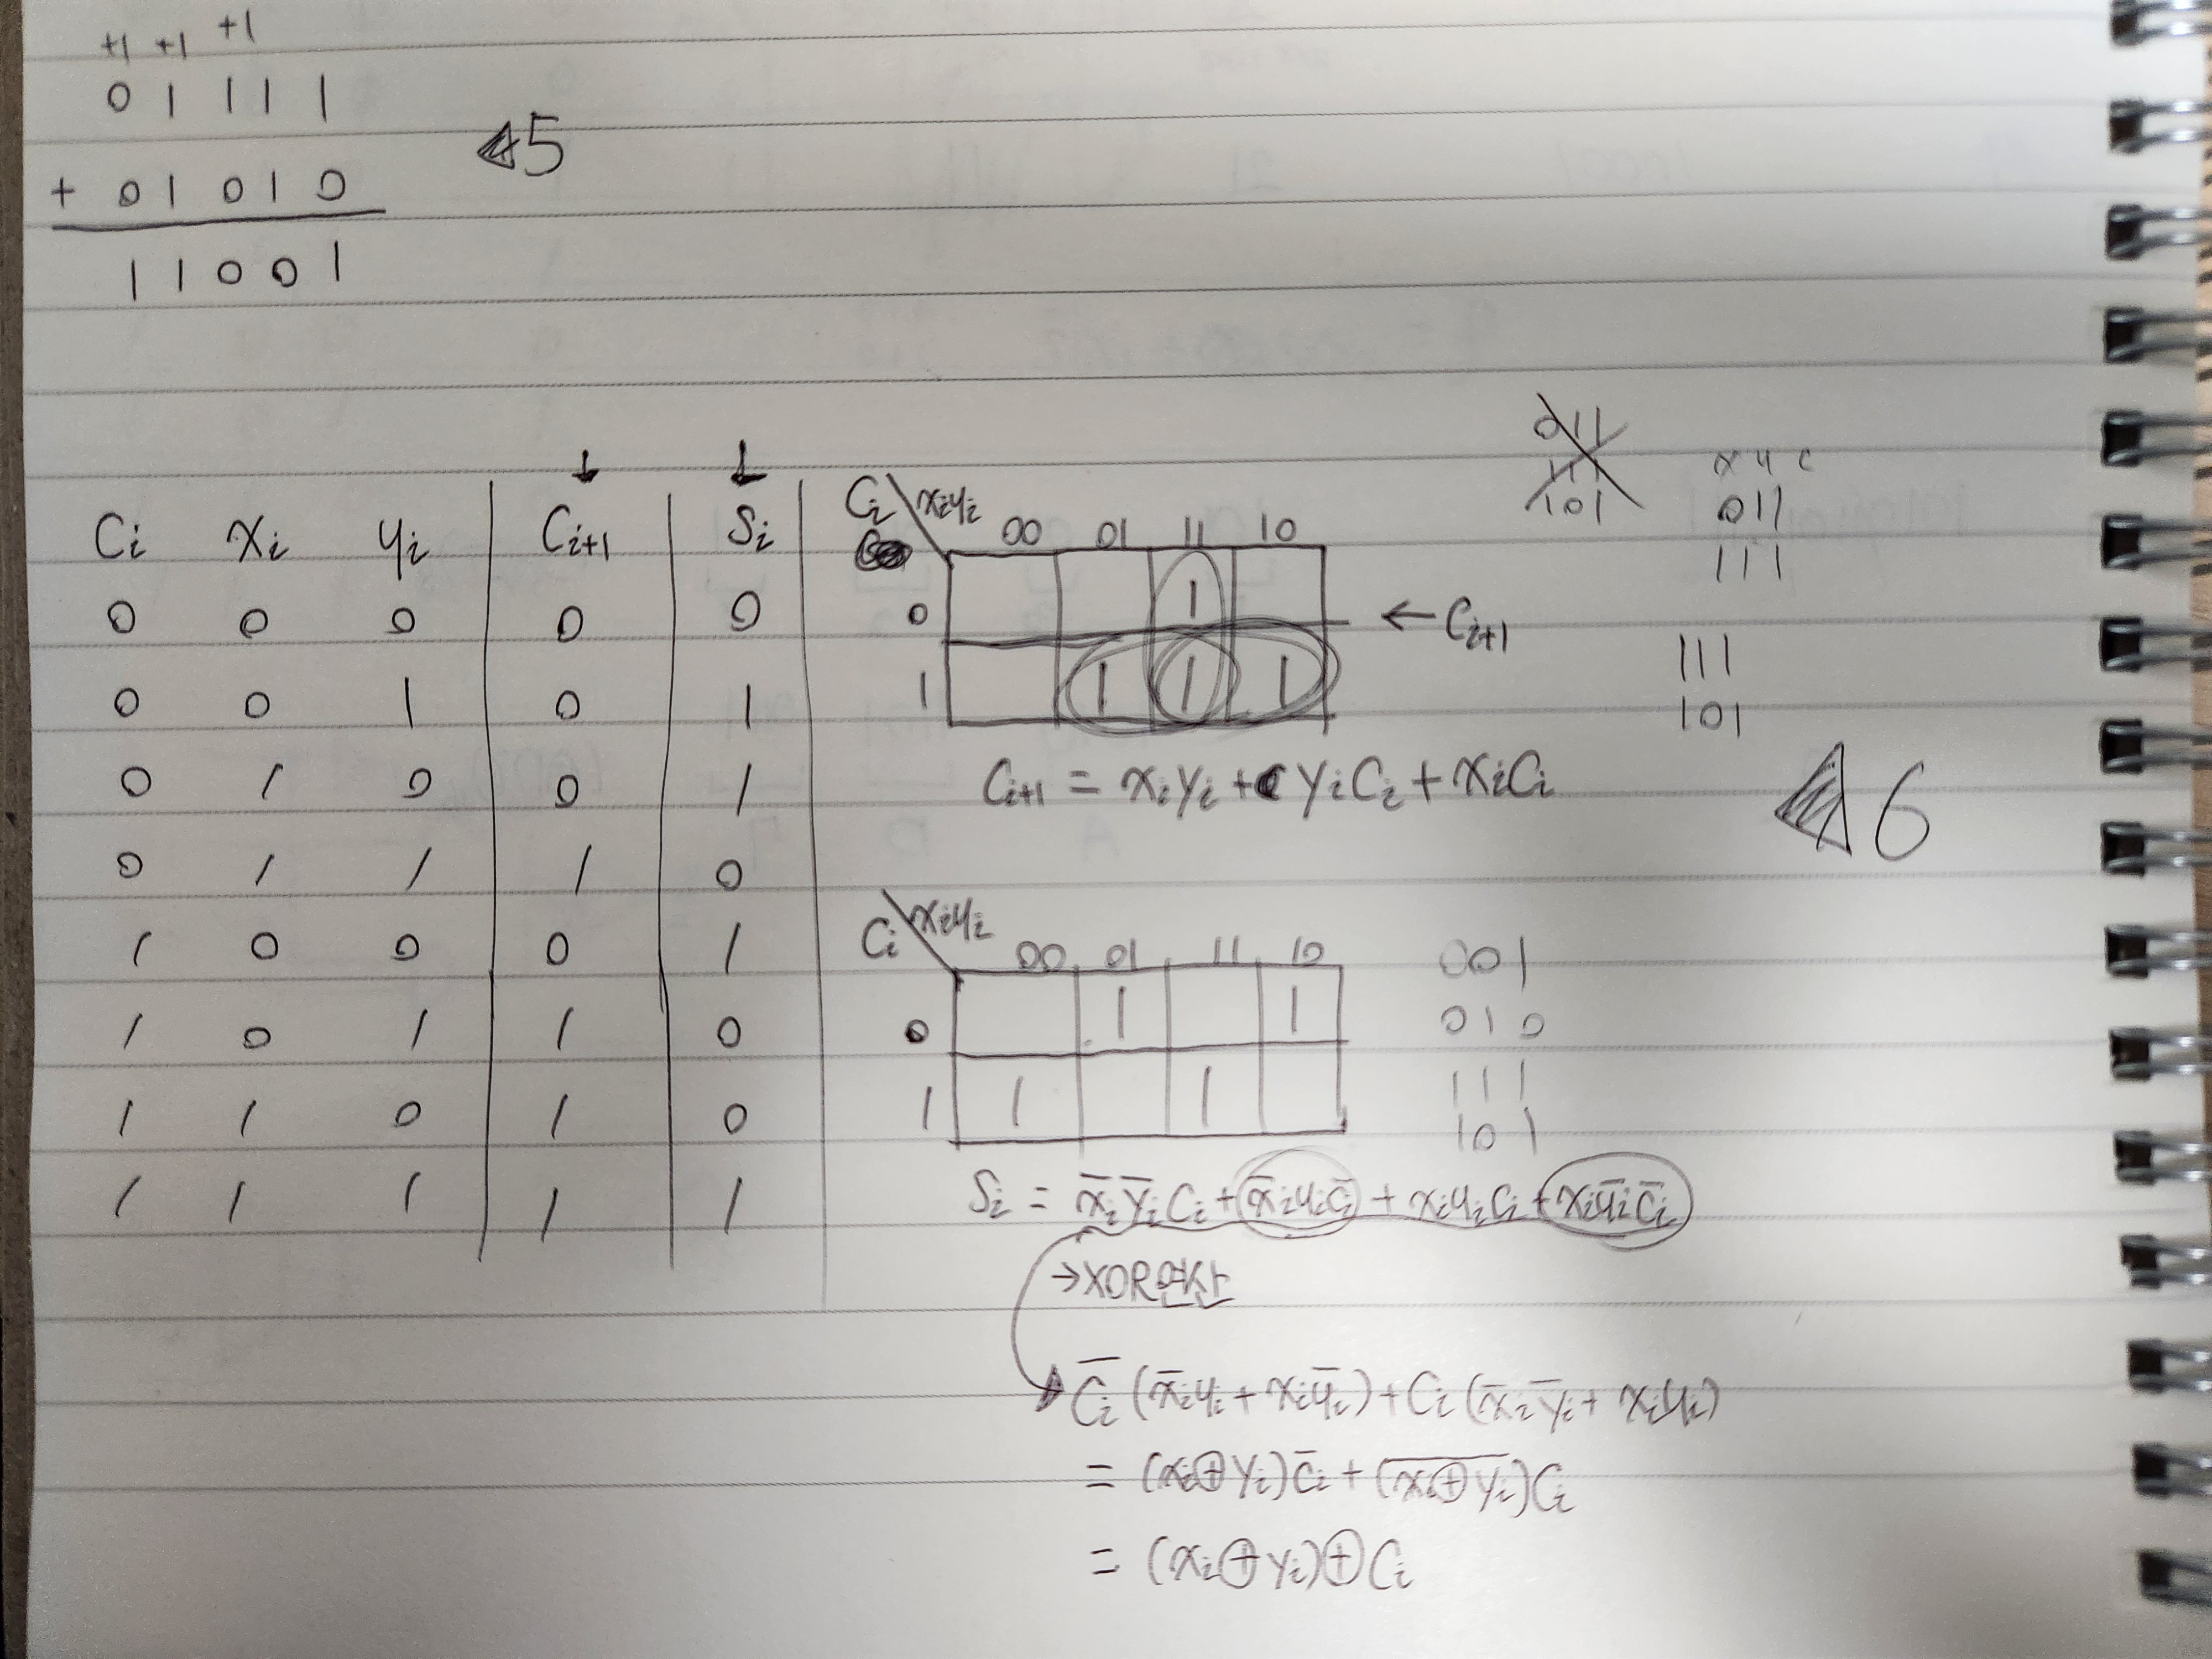 +1 +1 +1
0 1 1 1 1
+ 0 1 0 1 0
1 1 0 0 1
5
Ci xi yi Ci+1 Si
0 0 0 0 0
0 0 1 0 1
0 1 0 0 1
0 1 1 1 0
1 0 0 0 1
1 0 1 1 0
1 1 0 1 0
1 1 1 1 1
Ci xiyi 00 01 11 10
0 1
1 1 1 1
← Ci+1
Ci+1 = xiyi + yiCi + xiCi
011
111
101
x y c
011
111
111
101
6
Ci xiyi 00 01 11 10
0 1 1
1 1 1
001
010
111
101
Si = x̅iy̅iCi + x̅iyic̅i + xiyiCi + xiy̅ic̅i
→XOR연산
C̅i (x̅iyi + xiy̅i) + Ci (x̅iy̅i + xiyi)
= (xi⊕yi)c̅i + (x̅i̅⊕̅y̅i̅)Ci
= (xi⊕yi)⊕Ci